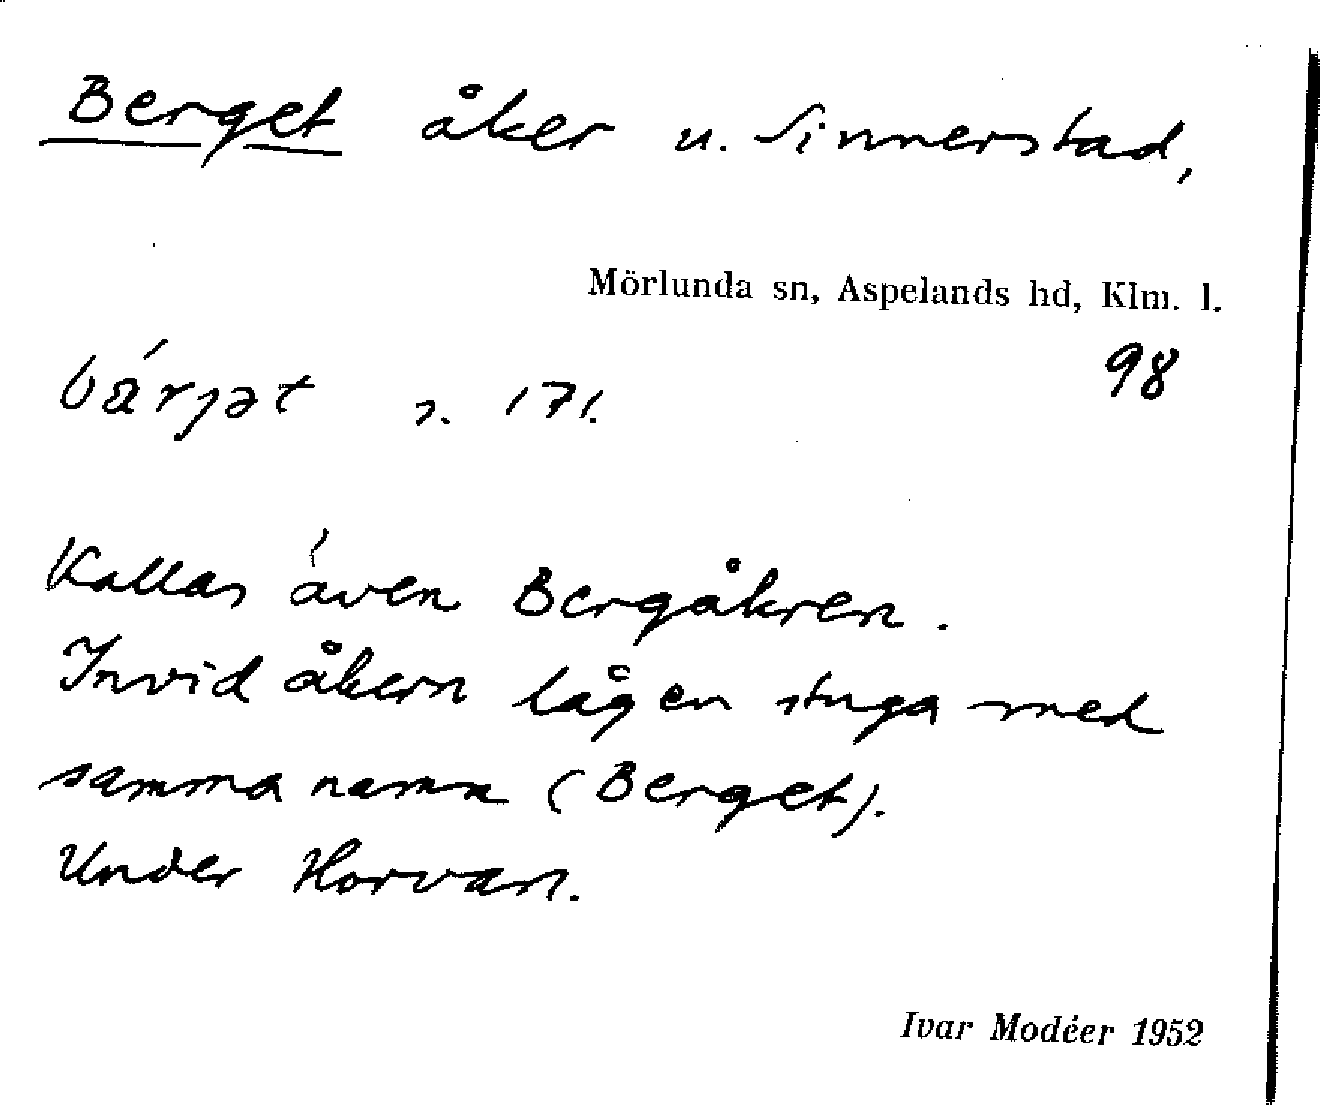 Berget åker u. Sinnerstad,
Mörlunda sn, Aspelands hd, Klm. l.
98
bä́rjət s. 171.
Kallas även Bergåkren.
Invid åkern låg en stuga med
samma namn (Berget).
Under Horvan.
Ivar Modéer 1952